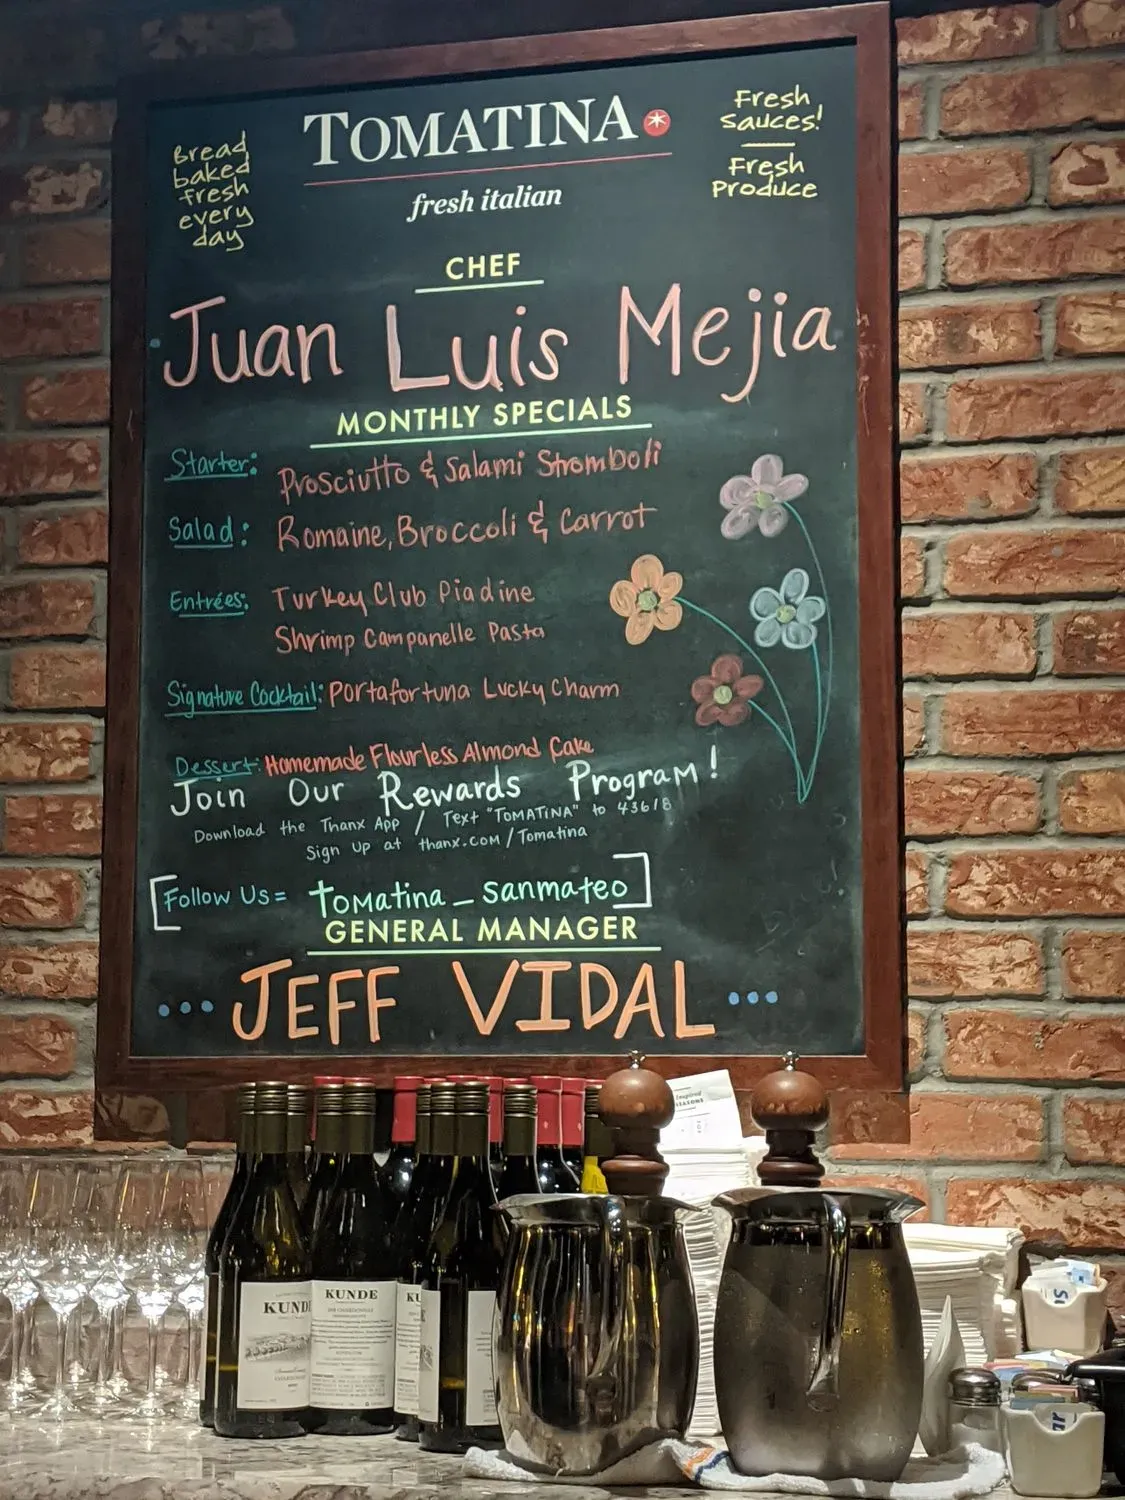 TOMATINA
fresh italian
Bread
baked
fresh
every
day
Fresh
Sauces!
Fresh
Produce
CHEF
Juan Luis Mejia
MONTHLY SPECIALS
Starter: Prosciutto & Salami Stromboli
Salad: Romaine, Broccoli & Carrot
Entrées: Turkey Club Piadine
Shrimp Campanelle Pasta
Signature Cocktail: Portafortuna Lucky Charm
Dessert: Homemade Flourless Almond Cake
Join Our Rewards Program!
Download the Thanx App / Text "TOMATINA" to 43618
Sign up at thanx.com/Tomatina
Follow Us = tomatina_sanmateo
GENERAL MANAGER
JEFF VIDAL
KUND
KUNDE
KU